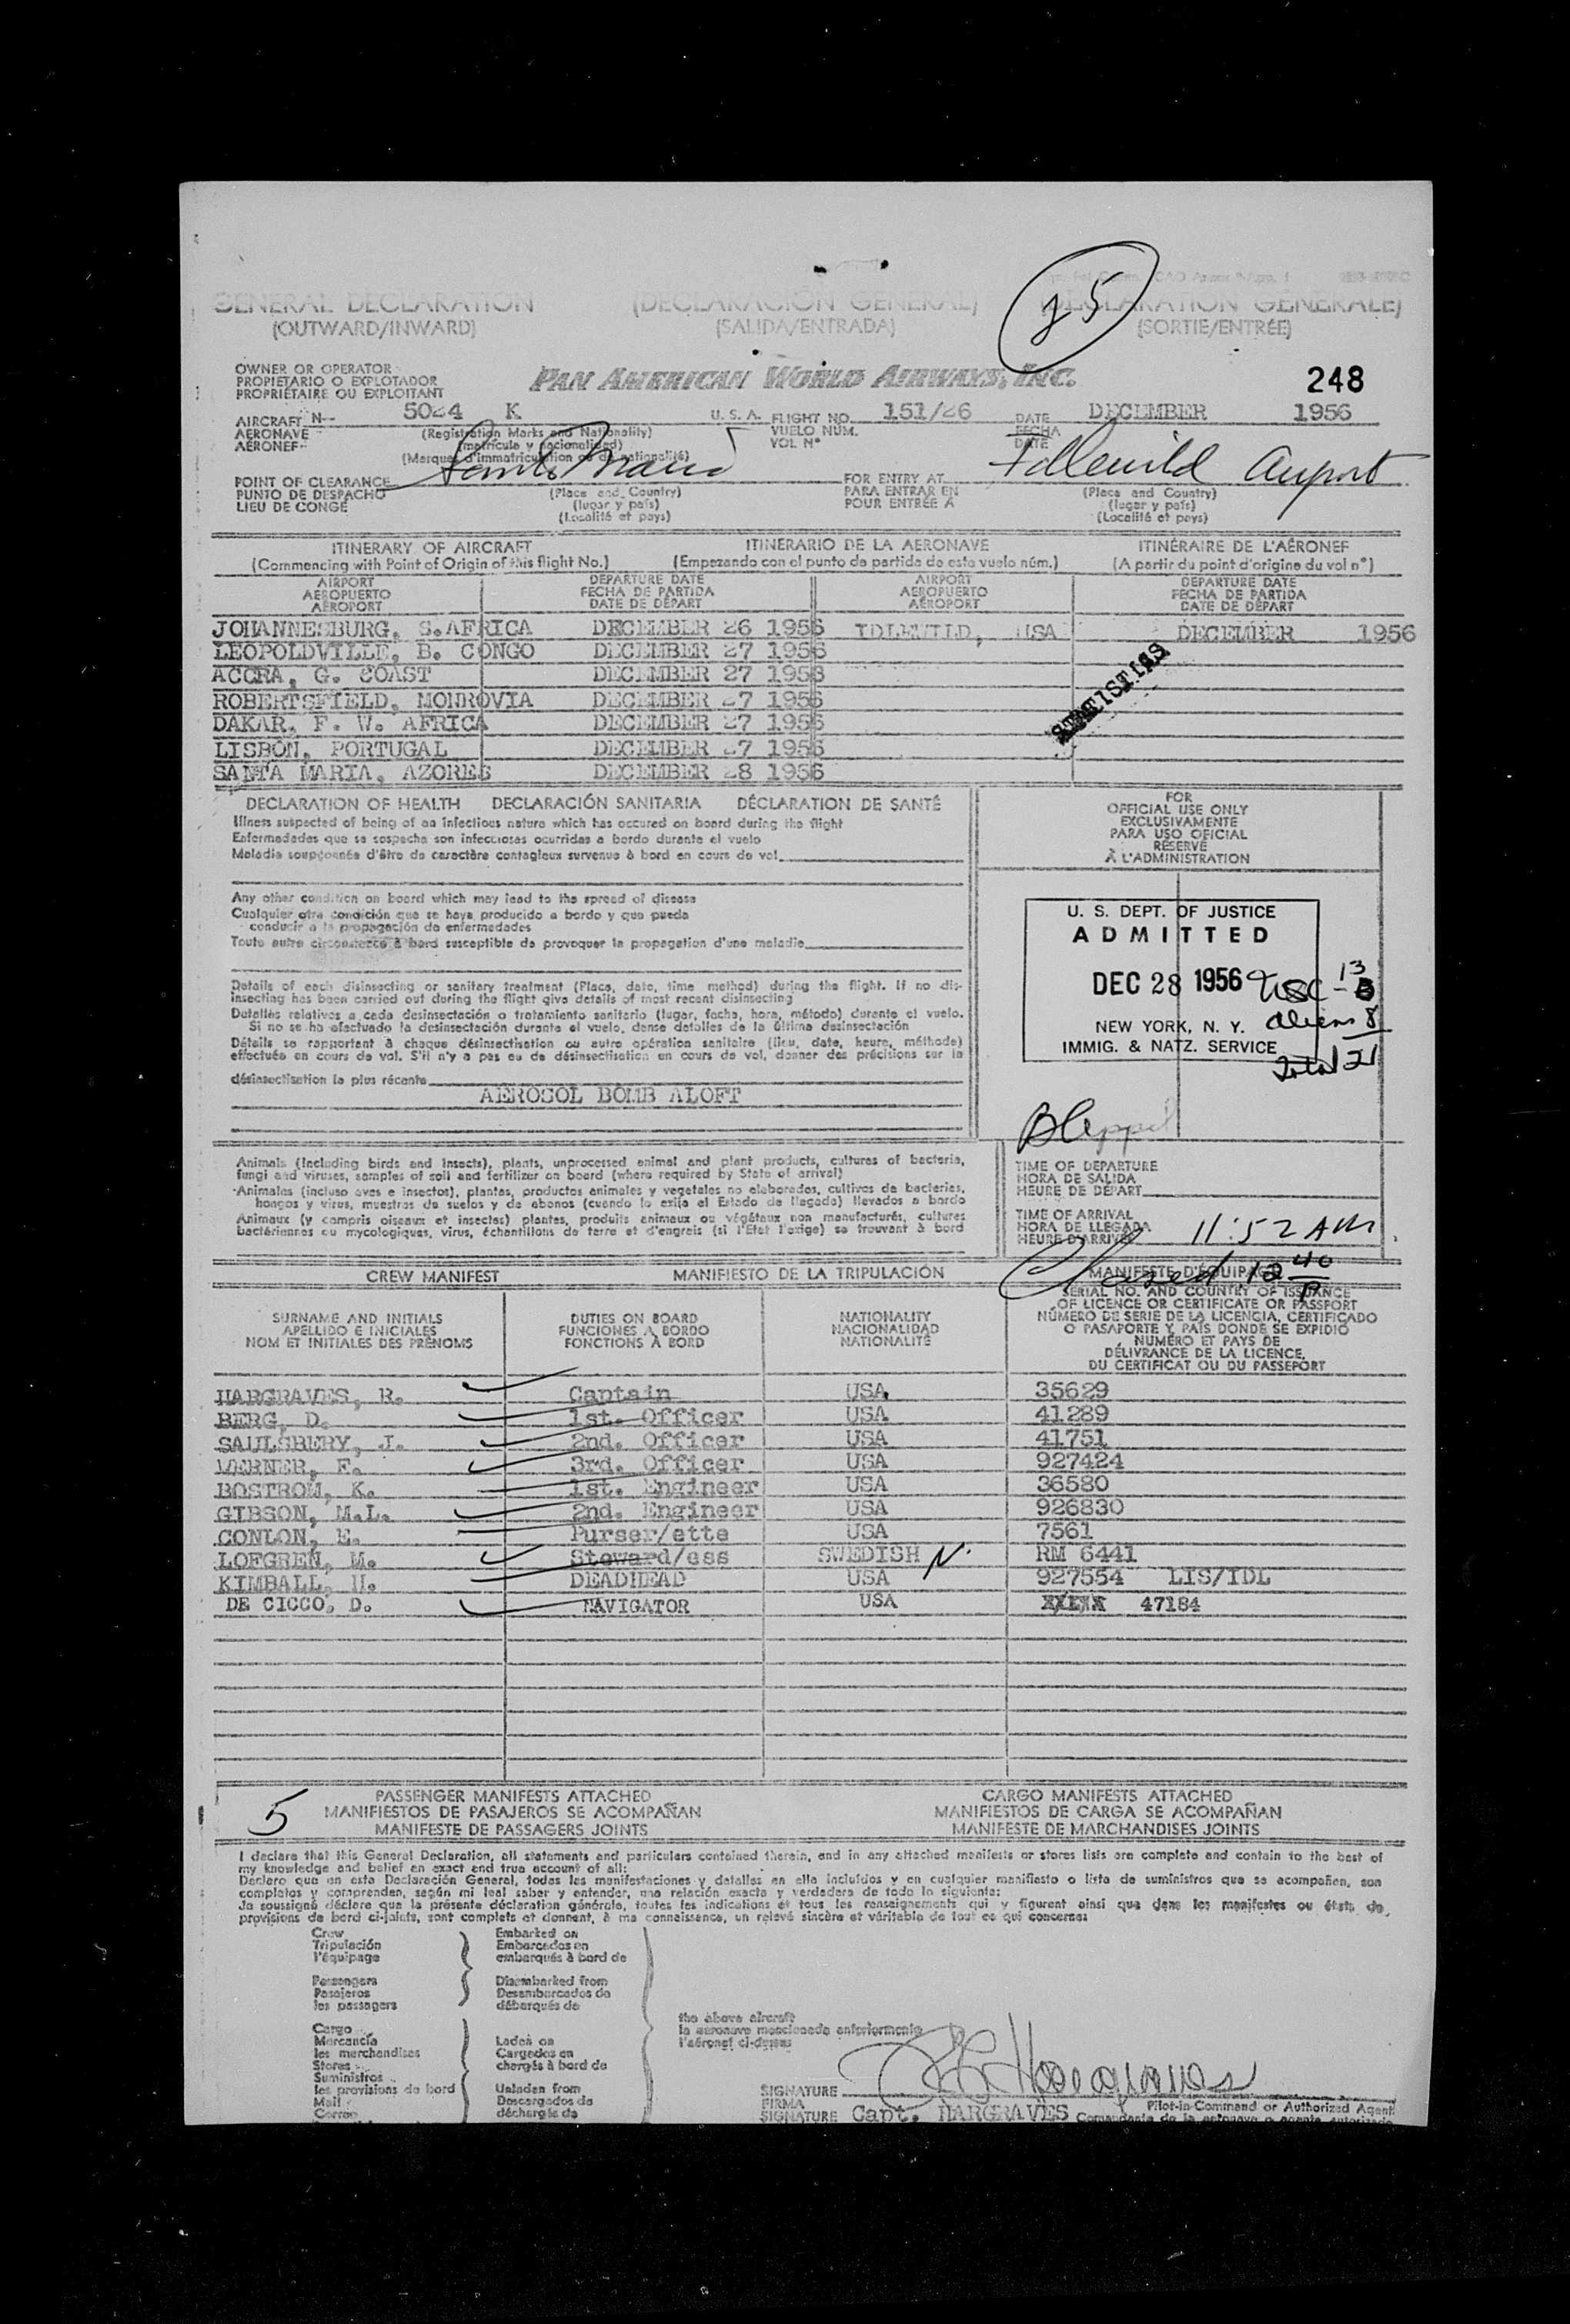 GENERAL DECLARATION (DECLARACIÓN GENERAL) (DÉCLARATION GÉNÉRALE)
(OUTWARD/INWARD) (SALIDA/ENTRADA) (SORTIE/ENTRÉE)
OWNER OR OPERATOR
PROPIETARIO O EXPLOTADOR
PROPRIÉTAIRE OU EXPLOITANT
PAN AMERICAN WORLD AIRWAYS, INC.
248
AIRCRAFT N- 5024 K U. S. A. FLIGHT NO. 151/26 DATE DECEMBER 1956
AERONAVE (Registration Marks and Nationality) VUELO NÚM. FECHA
AÉRONEF (matrícula y nacionalidad) VOL N° DATE
(Marques d'immatriculation et de nationalité)
POINT OF CLEARANCE Santa Maria FOR ENTRY AT Idlewild Airport
PUNTO DE DESPACHO (Place and Country) PARA ENTRAR EN (Place and Country)
LIEU DE CONGÉ (lugar y país) POUR ENTRÉE À (lugar y país)
(Localité et pays) (Localité et pays)
ITINERARY OF AIRCRAFT ITINERARIO DE LA AERONAVE ITINÉRAIRE DE L'AÉRONEF
(Commencing with Point of Origin of this flight No.) (Empezando con el punto de partida de este vuelo núm.) (A partir du point d'origine du vol n°)
AIRPORT DEPARTURE DATE AIRPORT DEPARTURE DATE
AEROPUERTO FECHA DE PARTIDA AEROPUERTO FECHA DE PARTIDA
AÉROPORT DATE DE DÉPART AÉROPORT DATE DE DÉPART
JOHANNESBURG, S.AFRICA DECEMBER 26 1956 IDLEWILD, USA DECEMBER 1956
LEOPOLDVILLE, B. CONGO DECEMBER 27 1956
ACCRA, G. COAST DECEMBER 27 1956
ROBERTSFIELD, MONROVIA DECEMBER 27 1956
DAKAR, F. W. AFRICA DECEMBER 27 1956
LISBON, PORTUGAL DECEMBER 27 1956
SANTA MARIA, AZORES DECEMBER 28 1956
STATISTICS
DECLARATION OF HEALTH DECLARACIÓN SANITARIA DÉCLARATION DE SANTÉ
Illness suspected of being of an infectious nature which has occured on board during the flight
Enfermedades que se sospecha son infecciosas ocurridas a bordo durante el vuelo
Maladie soupçonnée d'être de caractère contagieux survenue à bord en cours de vol
FOR
OFFICIAL USE ONLY
EXCLUSIVAMENTE
PARA USO OFICIAL
RÉSERVÉ
À L'ADMINISTRATION
Any other condition on board which may lead to the spread of disease
Cualquier otra condición que se haya producido a bordo y que pueda
conducir a la propagación de enfermedades
Toute autre circonstance à bord susceptible de provoquer la propagation d'une maladie
U. S. DEPT. OF JUSTICE
ADMITTED
DEC 28 1956
NEW YORK, N. Y.
IMMIG. & NATZ. SERVICE
USC - 13
aliens 8
Total 21
Details of each disinsecting or sanitary treatment (Place, date, time method) during the flight. If no dis-
insecting has been carried out during the flight give details of most recent disinsecting
Detalles relativos a cada desinsectación o tratamiento sanitario (lugar, fecha, hora, método) durante el vuelo.
Si no se ha efectuado la desinsectación durante el vuelo, dense detalles de la última desinsectación
Détails se rapportant à chaque désinsectisation ou autre opération sanitaire (lieu, date, heure, méthode)
effectuée en cours de vol. S'il n'y a pas eu de désinsectisation en cours de vol, donner des précisions sur la
désinsectisation la plus récente
AEROSOL BOMB ALOFT
Animals (including birds and insects), plants, unprocessed animal and plant products, cultures of bacteria,
fungi and viruses, samples of soil and fertilizer on board (where required by State of arrival)
Animales (incluso aves e insectos), plantas, productos animales y vegetales no elaborados, cultivos de bacterias,
hongos y virus, muestras de suelos y de abonos (cuando lo exija el Estado de llegada) llevados a bordo
Animaux (y compris oiseaux et insectes) plantes, produits animaux ou végétaux non manufacturés, cultures
bactériennes ou mycologiques, virus, échantillons de terre et d'engrais (si l'État l'exige) se trouvant à bord
TIME OF DEPARTURE
HORA DE SALIDA
HEURE DE DÉPART
TIME OF ARRIVAL
HORA DE LLEGADA
HEURE D'ARRIVÉE 11:52 AM
CREW MANIFEST MANIFIESTO DE LA TRIPULACIÓN MANIFESTE D'ÉQUIPAGE
SURNAME AND INITIALS DUTIES ON BOARD NATIONALITY
APELLIDO E INICIALES FUNCIONES A BORDO NACIONALIDAD
NOM ET INITIALES DES PRÉNOMS FONCTIONS À BORD NATIONALITÉ
SERIAL NO. AND COUNTRY OF ISSUANCE
OF LICENCE OR CERTIFICATE OR PASSPORT
NÚMERO DE SERIE DE LA LICENCIA, CERTIFICADO
O PASAPORTE Y PAÍS DONDE SE EXPIDIÓ
NUMÉRO ET PAYS DE
DÉLIVRANCE DE LA LICENCE,
DU CERTIFICAT OU DU PASSEPORT
HARGRAVES, R. Captain USA 35629
BERG, D. 1st. Officer USA 41289
SAULSBERY, J. 2nd. Officer USA 41751
WERNER, F. 3rd. Officer USA 927424
BOSTROM, K. 1st. Engineer USA 36580
GIBSON, M.L. 2nd. Engineer USA 926830
CONLON, E. Purser/ette USA 7561
LOFGREN, M. Steward/ess SWEDISH RM 6441
KIMBALL, H. DEADHEAD USA 927554 LIS/IDL
DE CICCO, D. NAVIGATOR USA 47184
5
PASSENGER MANIFESTS ATTACHED CARGO MANIFESTS ATTACHED
MANIFIESTOS DE PASAJEROS SE ACOMPAÑAN MANIFIESTOS DE CARGA SE ACOMPAÑAN
MANIFESTE DE PASSAGERS JOINTS MANIFESTE DE MARCHANDISES JOINTS
I declare that this General Declaration, all statements and particulars contained therein, and in any attached manifests or stores lists are complete and contain to the best of
my knowledge and belief an exact and true account of all:
Declaro que en esta Declaración General, todas las manifestaciones y detalles en ella incluídos y en cualquier manifiesto o lista de suministros que se acompañen, son
completos y comprenden, según mi leal saber y entender, una relación exacta y verdadera de todo lo siguiente:
Je soussigné déclare que la présente déclaration générale, toutes les indications et tous les renseignements qui y figurent ainsi que dans les manifestes ou états de
provisions de bord ci-joints, sont complets et donnent, à ma connaissance, un relevé sincère et véritable de tout ce qui concerne:
Crew Embarked on
Tripulación Embarcados en
l'équipage embarqués à bord de
Passengers Disembarked from
Pasajeros Desembarcados de
les passagers débarqués de
the above aircraft
la aeronave mencionada anteriormente
l'aéronef ci-dessus
Cargo
Mercancía Laden on
les marchandises Cargados en
Stores chargés à bord de
Suministros
les provisions de bord Unladen from
Mail Descargados de
Correo déchargés de
SIGNATURE
FIRMA Pilot-in-Command or Authorized Agent
SIGNATURE Capt. HARGRAVES Comandante de la aeronave o agente autorizado